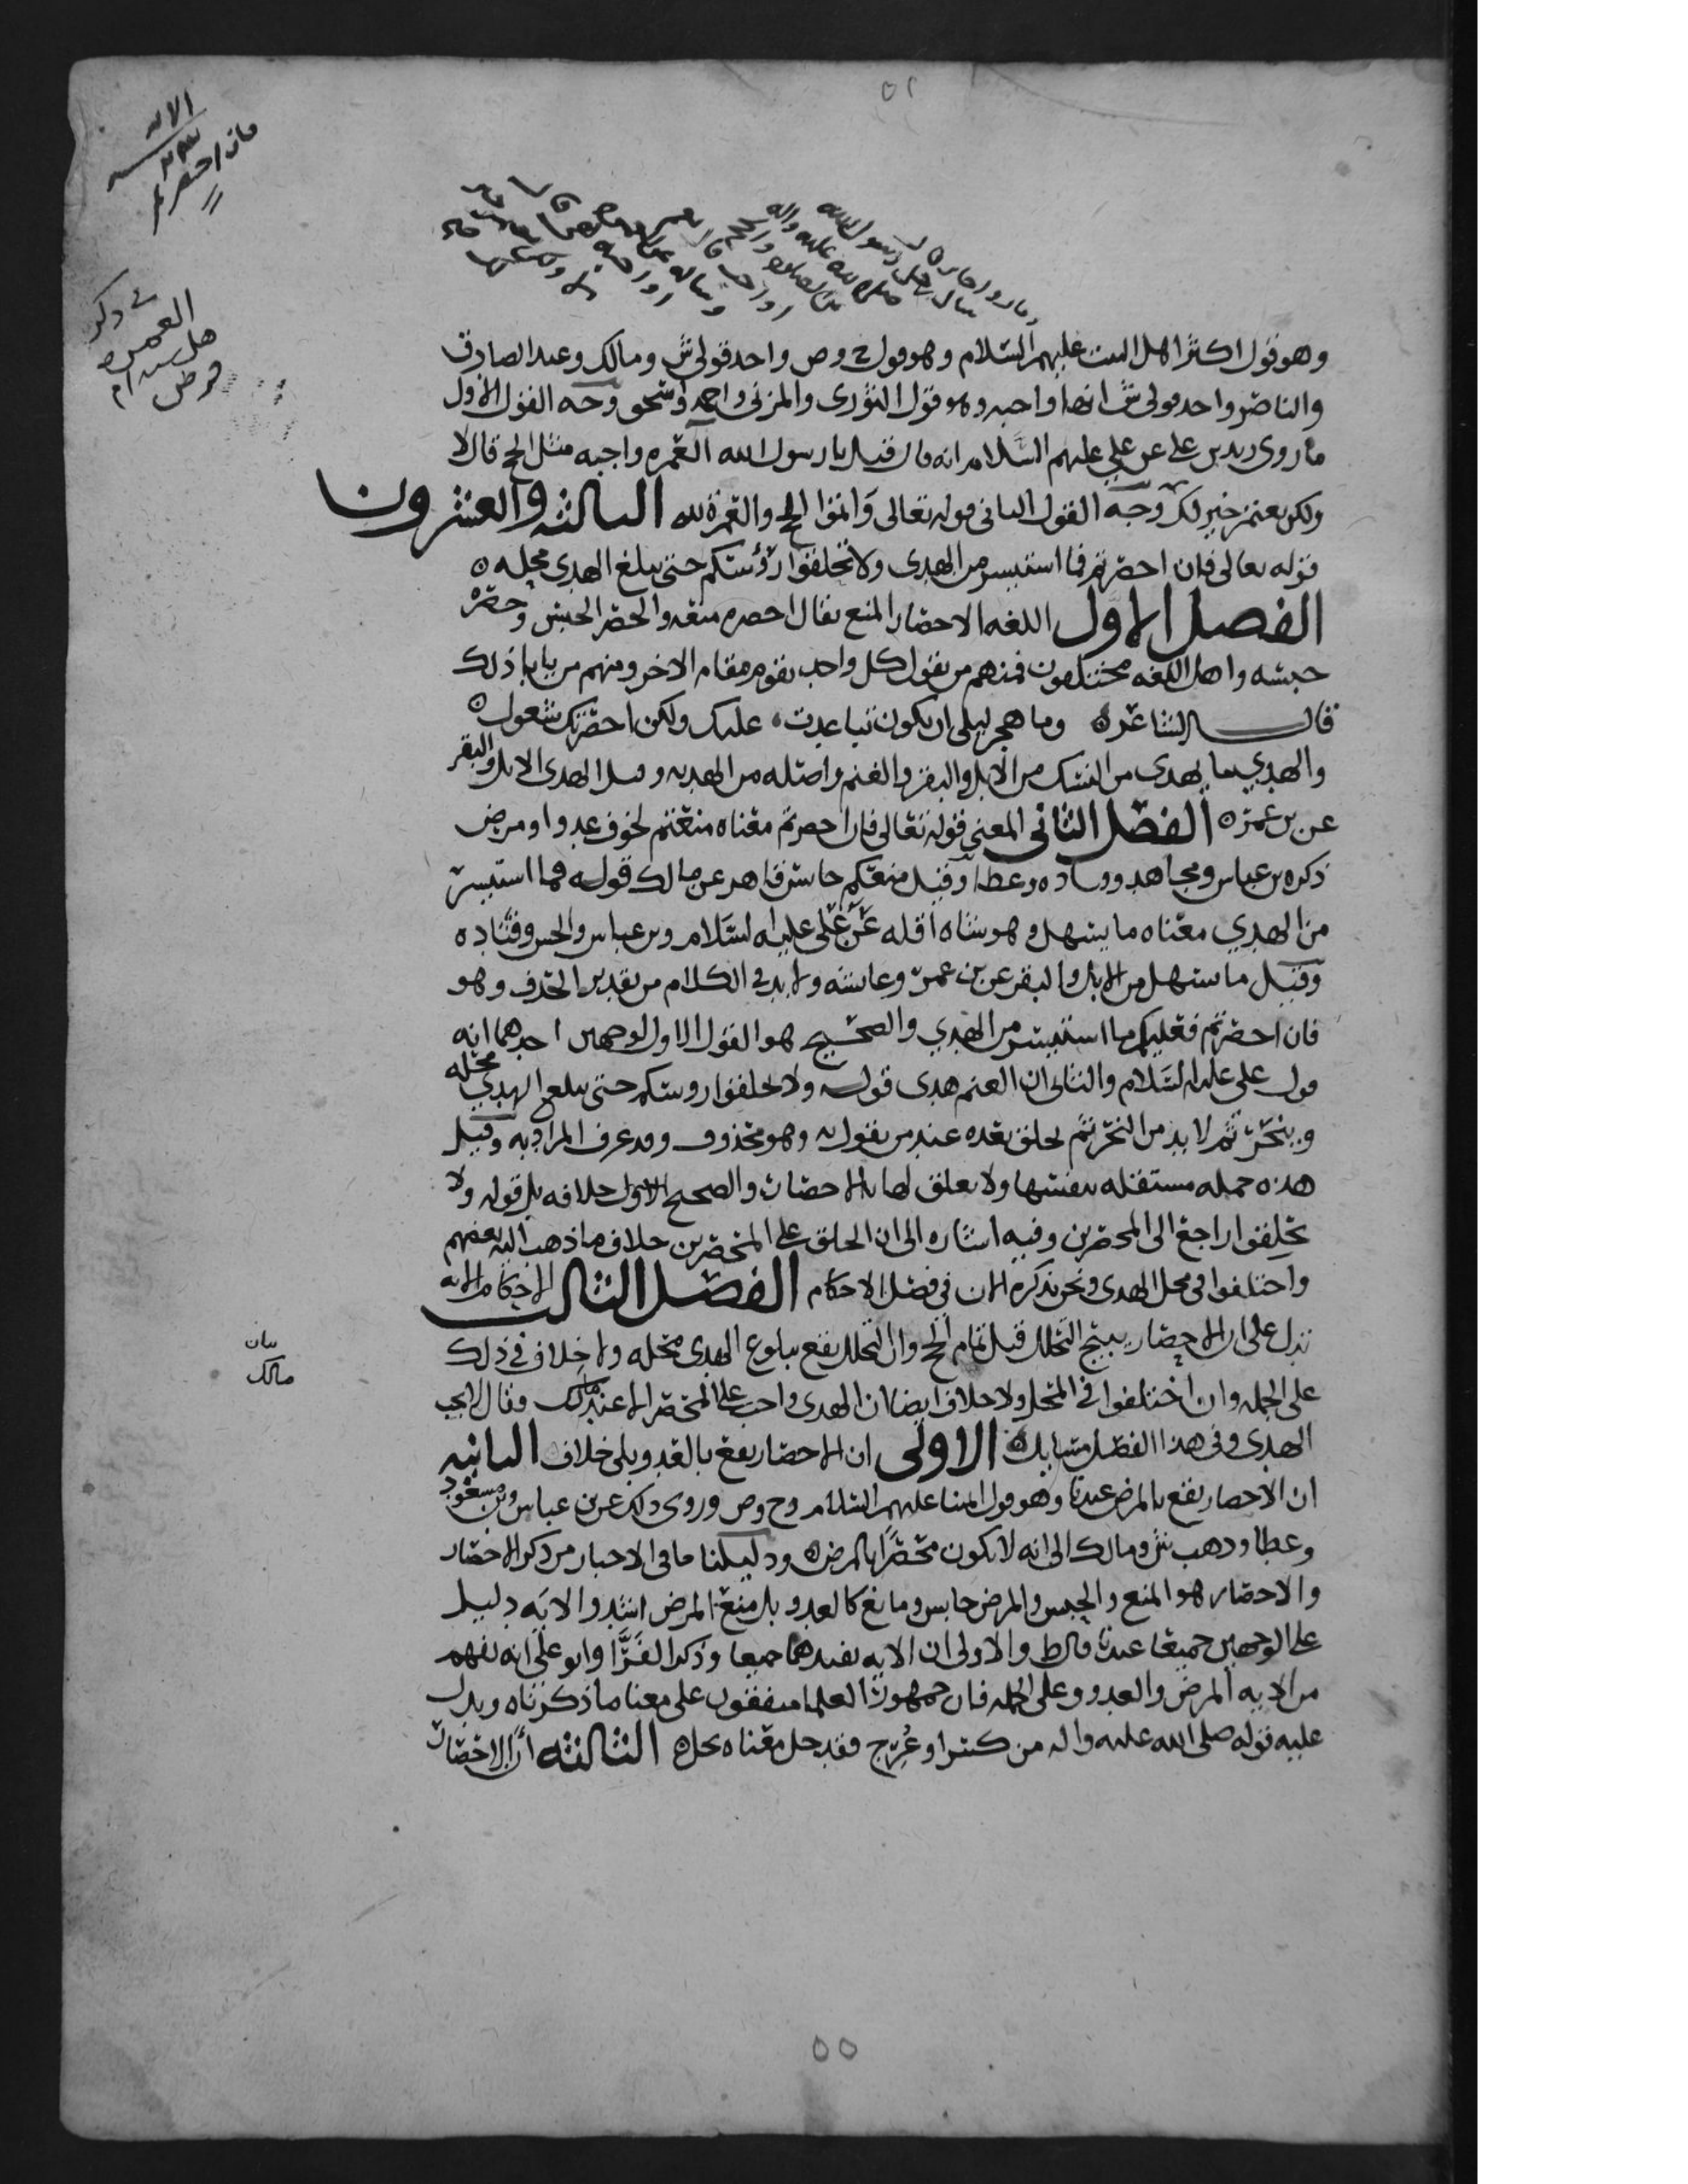 وهو قول اكثر اهل البيت عليهم السلام وهو قول ح وص واحد قولي ش ومالك وعند الصادق
والناصر واحد قولي ش انها واجبه وهو قول الثوري والمزني واحمد واسحق وجه القول الاول
ما روى زيد بن علي عن علي عليهم السلام انه قال قيل يا رسول الله العمره واجبه مثل الحج قال لا
ولكن يعتمر خير لك وجه القول الثاني قوله تعالى وَاتموا الحج والعمرة لله الثالثه والعشرون
قوله تعالى فان احصرتم فما استيسر من الهدى ولا تحلقوا رؤسكم حتى يبلغ الهدى محله ه
الفصل الاول اللغه الاحصار المنع يقال احصره منعه والحصر الحبس وحصره
حبسه واهل اللغه مختلفون فمنهم من يقول كل واحد يقوم مقام الاخر ومنهم من يابا ذلك
قال الشاعر ه وما هجر ليلى ان تكون تباعدت ه عليك ولكن احصرتك شغول ه
والهدي ما يهدى من النسك من الابل والبقر والغنم واصله من الهديه وقيل الهدى الابل والبقر
عن بن عمر ه الفصل الثاني المعنى قوله تعالى فان احصرتم معناه منعتم لخوف عدو او مرض
ذكره بن عباس ومجاهد وقتاده وعطا وقيل منعكم حابس قاهر عن مالك قوله فما استيسر
من الهدي معناه ما يسهل وهو شاه اقله عن علي عليه السلام وبن عباس والحسن وقتاده
وقيل ما يسهل من الابل والبقر عن بن عمر وعائشه ولا بد في الكلام من تقدير الحذف وهو
فان احصرتم فعليكم ما استيسر من الهدي والصحيح هو القول الاول لوجهين احدهما انه
قول علي عليه السلام والثاني ان الغنم هدى قوله ولا تحلقوا روسكم حتى يبلغ الهدي محله
وينحر ثم لا بد من النحر ثم يحلق بعده عند من يقول به وهو محذوف وقد عرف المراد به وقيل
هذه جمله مستقله بنفسها ولا تعلق لها بالاحصار والصحيح الاول خلافه بل قوله ولا
تحلقوا راجع الى المحصرين وفيه اشاره الى ان الحلق على المحصرين خلاف ما ذهب اليه بعضهم
واختلفوا في محل الهدى ونحن نذكره الان في فصل الاحكام الفصل الثالث الاحكام الايه
تدل على ان الاحصار يبيح التحلل قبل تمام الحج وان التحلل يقع ببلوغ الهدى محله ولا خلاف في ذلك
على الجمله وان اختلفوا في المحل ولا خلاف ايضا ان الهدى واجب على المحصر الا عند مالك وقال لا يجب
الهدى وفي هذا الفصل مسايل ه الاولى ان الاحصار يقع بالعدو بلى خلاف الثانيه
ان الاحصار يقع بالمرض عندنا وهو قول ائمتنا عليهم السلام وح وص وروى ذلك عن بن عباس وبن مسعود
وعطا وذهب ش ومالك الى انه لا يكون محصراً بالمرض ه ودليلنا ما في الاخبار من ذكر الاحصار
والاحصار هو المنع والحبس والمرض حابس ومانع كالعدو بل منع المرض اشد والايه دليل
على الوجهين جميعا عندنا قال ط والاولى ان الايه تفيدهما جميعا وذكر الفَرَّا وابو علي انه يفهم
مراد به المرض والعدو وعلى الجمله فان جمهور العلما متفقون على معنا ما ذكرناه ويدل
عليه قوله صلى الله عليه واله من كسر او عُرِج فقد حل معناه يحل ه الثالثه ان الاحصار
في ذكر
العمره
هل سنه ام
فرض
بيان
مالك
٥٥